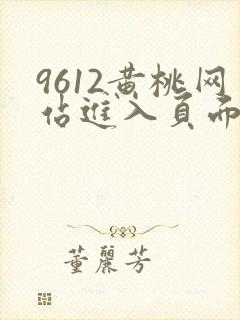 9612黄桃网
站進入頁面
董麗芳